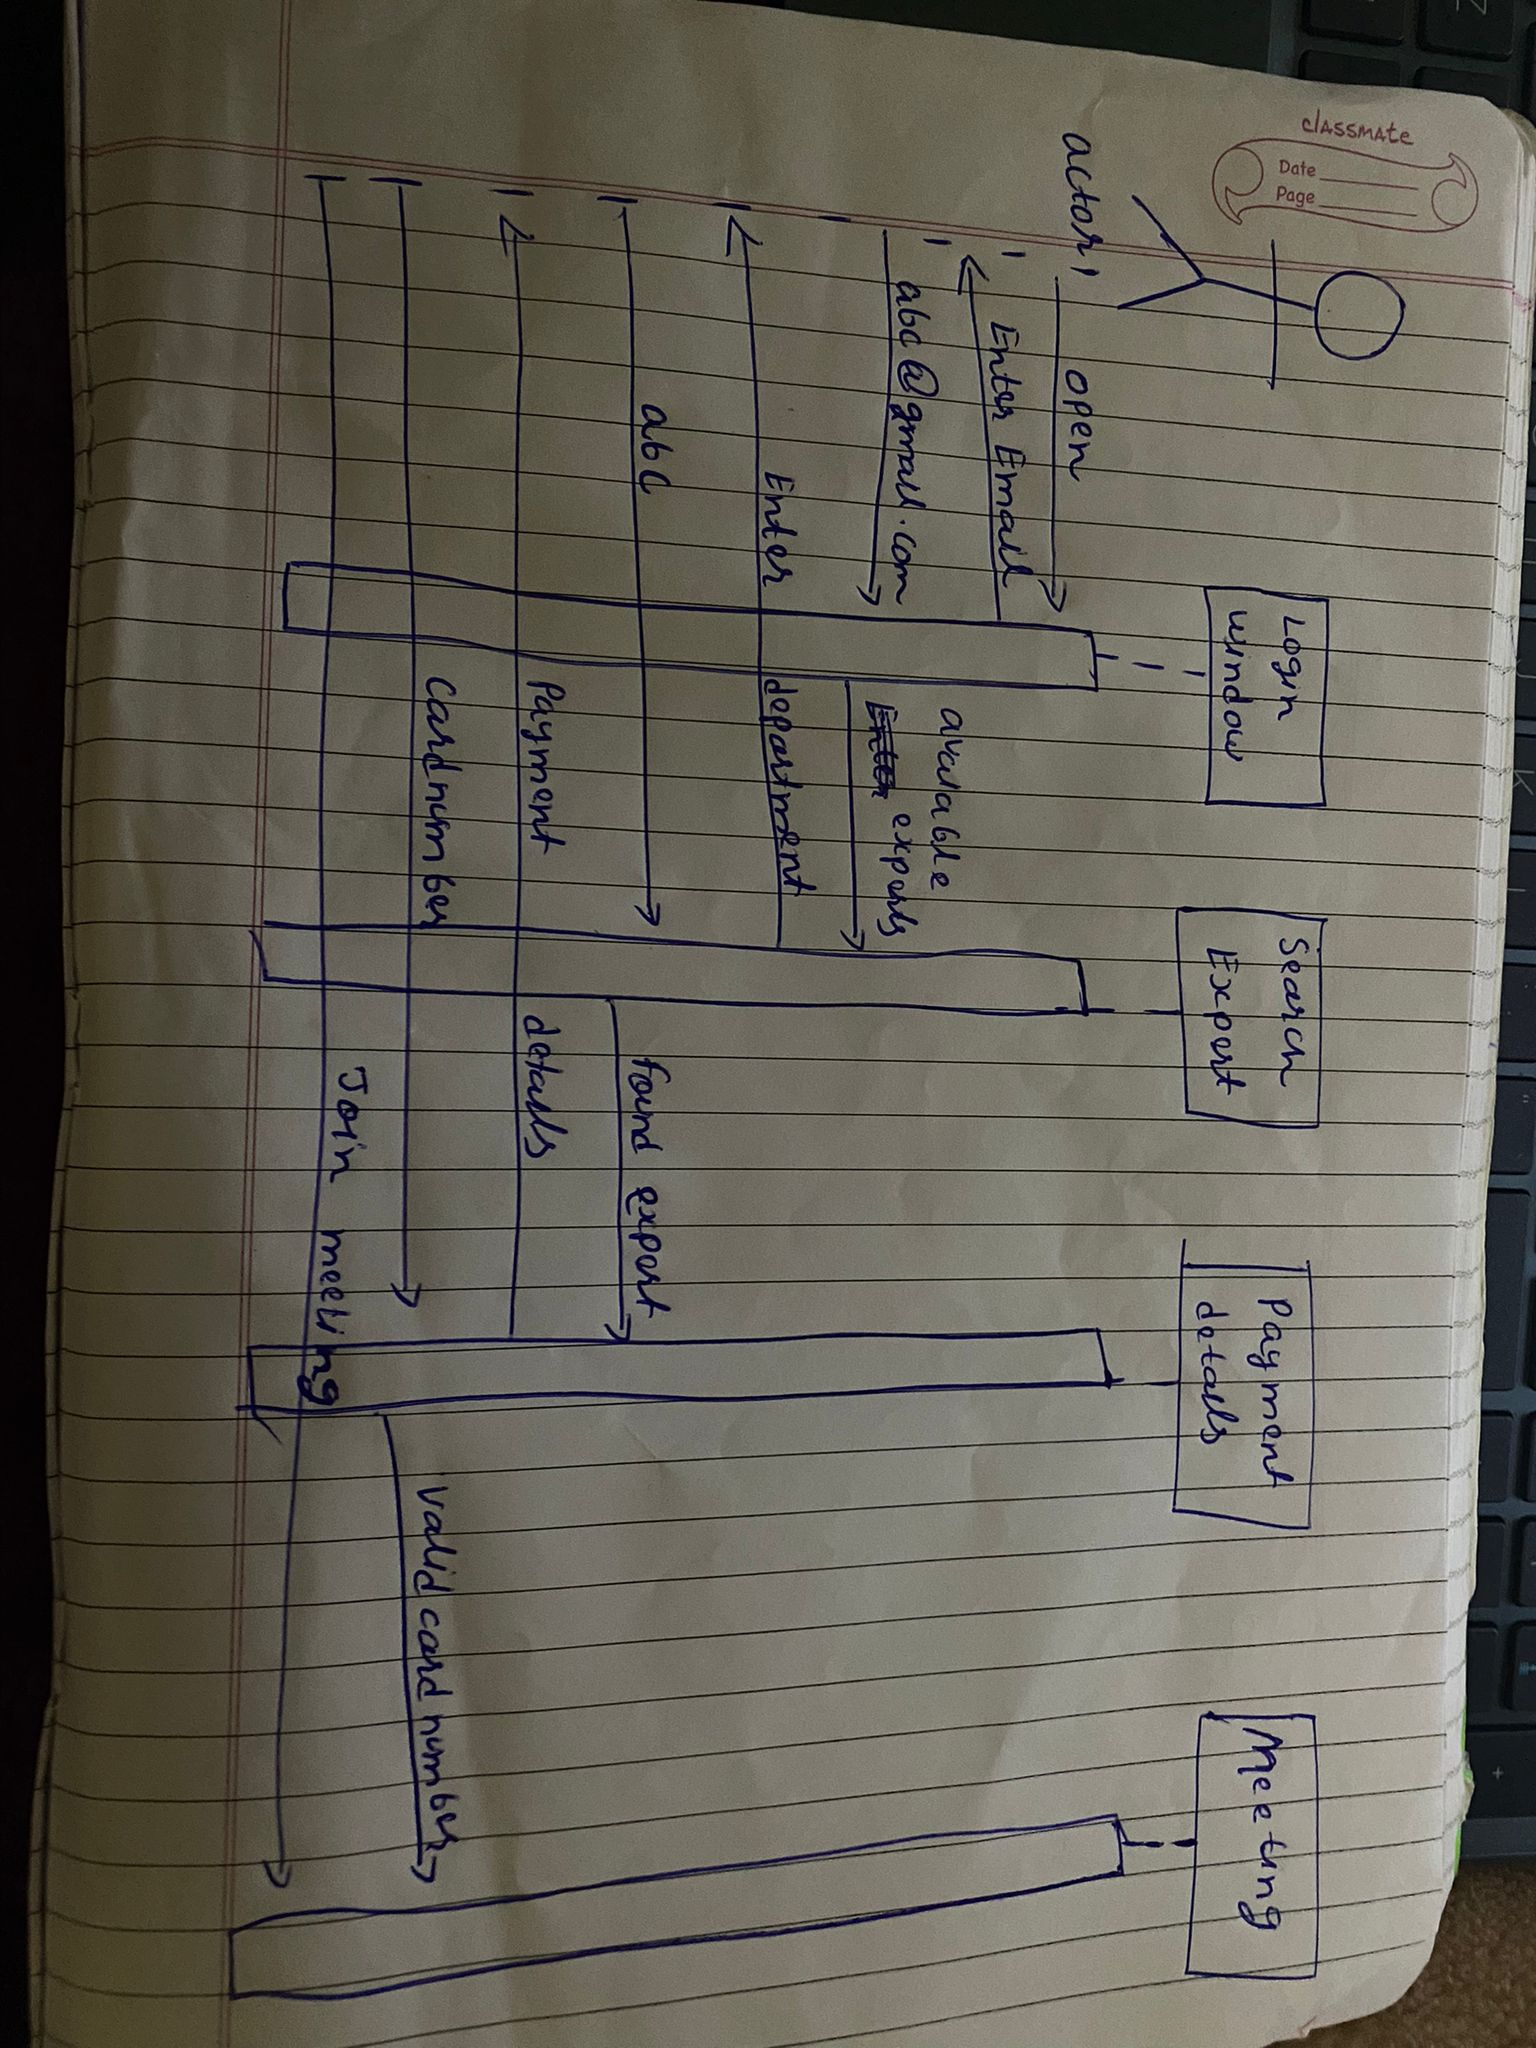 classmate
Date
Page
actor
Login
window
Search
Expert
Payment
details
Meeting
open
Enter Email
abc@gmail.com
available
experts
Enter department
abc
found expert
Payment details
card number
valid card number
Join meeting